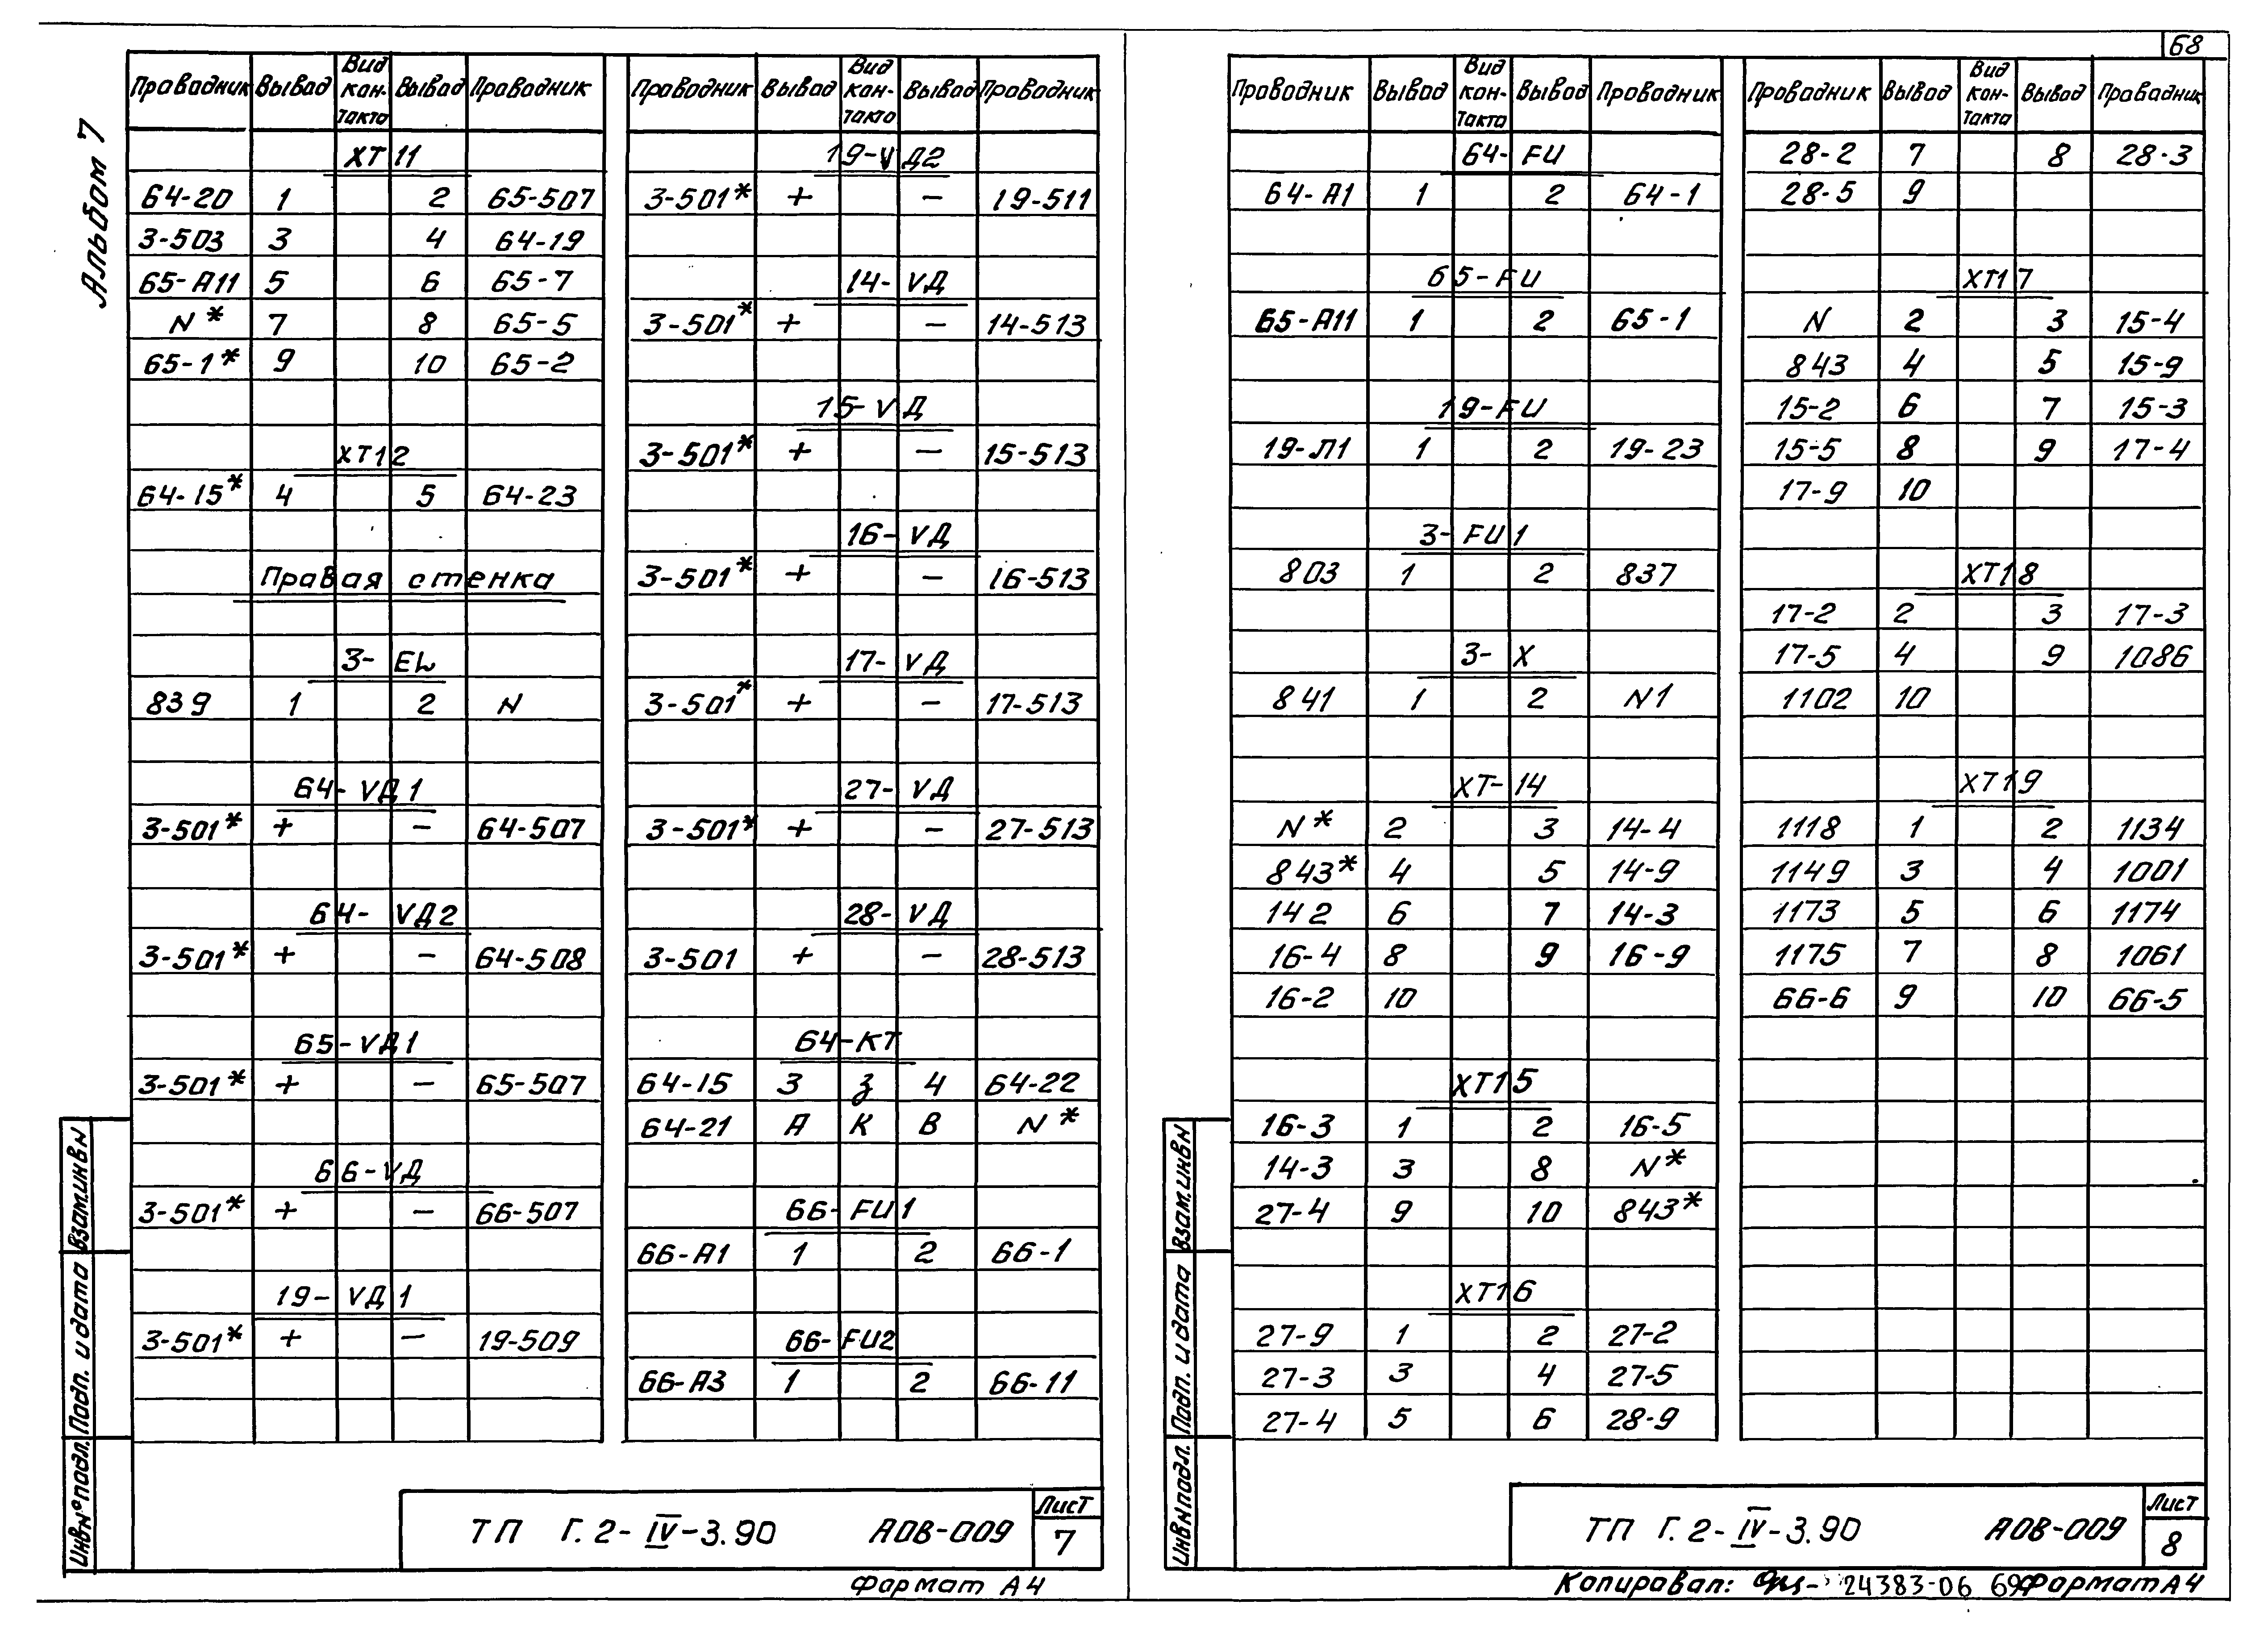 68
Альбом 7
Проводник Вывод Вид кон-такта Вывод Проводник
ХТ 11
64-20 1 2 65-507
3-503 3 4 64-19
65-А11 5 6 65-7
N* 7 8 65-5
65-1* 9 10 65-2
ХТ12
64-15* 4 5 64-23
Правая стенка
3- EL
839 1 2 N
64-VД1
3-501* + - 64-507
64-VД2
3-501* + - 64-508
65-VД1
3-501* + - 65-507
66-VД
3-501* + - 66-507
19-VД1
3-501* + - 19-509
Проводник Вывод Вид кон-такта Вывод Проводник
19-VД2
3-501* + - 19-511
14-VД
3-501* + - 14-513
15-VД
3-501* + - 15-513
16-VД
3-501* + - 16-513
17-VД
3-501* + - 17-513
27-VД
3-501* + - 27-513
28-VД
3-501 + - 28-513
64-КТ
64-15 3 з 4 64-22
64-21 А К В N*
66-FU1
66-А1 1 2 66-1
66-FU2
66-А3 1 2 66-11
Взам.инв N
Подп. и дата
Инв N° подл.
ТП Г.2-IV-3.90 АОВ-009
Лист
7
Формат А4
Проводник Вывод Вид кон-такта Вывод Проводник
64-FU
64-А1 1 2 64-1
65-FU
65-А11 1 2 65-1
19-FU
19-Л1 1 2 19-23
3-FU1
803 1 2 837
3-Х
841 1 2 N1
ХТ-14
N* 2 3 14-4
843* 4 5 14-9
142 6 7 14-3
16-4 8 9 16-9
16-2 10
ХТ15
16-3 1 2 16-5
14-3 3 8 N*
27-4 9 10 843*
ХТ16
27-9 1 2 27-2
27-3 3 4 27-5
27-4 5 6 28-9
Проводник Вывод Вид кон-такта Вывод Проводник
28-2 7 8 28-3
28-5 9
ХТ17
N 2 3 15-4
843 4 5 15-9
15-2 6 7 15-3
15-5 8 9 17-4
17-9 10
ХТ18
17-2 2 3 17-3
17-5 4 9 1086
1102 10
ХТ19
1118 1 2 1134
1149 3 4 1001
1173 5 6 1174
1175 7 8 1061
66-6 9 10 66-5
Взам.инв N
Подп. и дата
Инв N подл.
ТП Г.2-IV-3.90 АОВ-009
Лист
8
Копировал: 24383-06 69 Формат А4